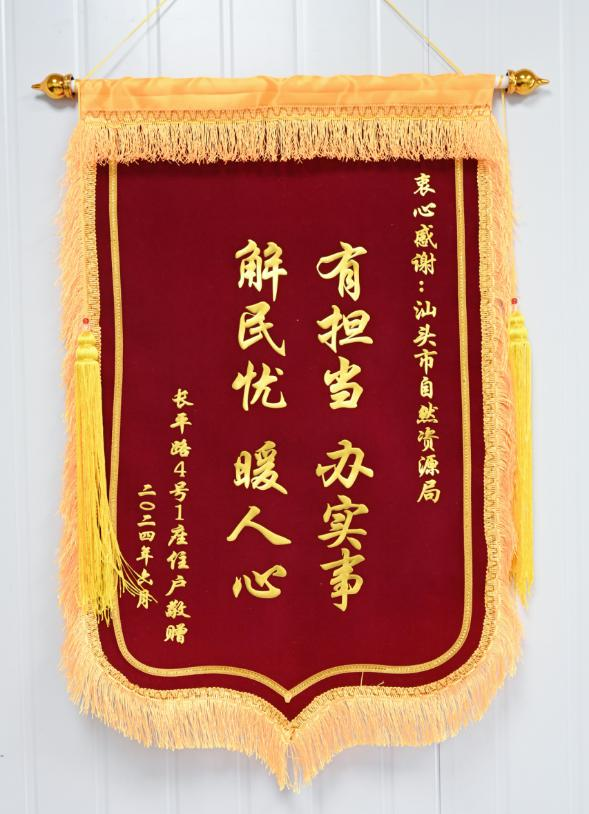 衷心感谢：汕头市自然资源局
有担当 办实事
解民忧 暖人心
长平路4号1座住户敬赠
二〇二四年六月